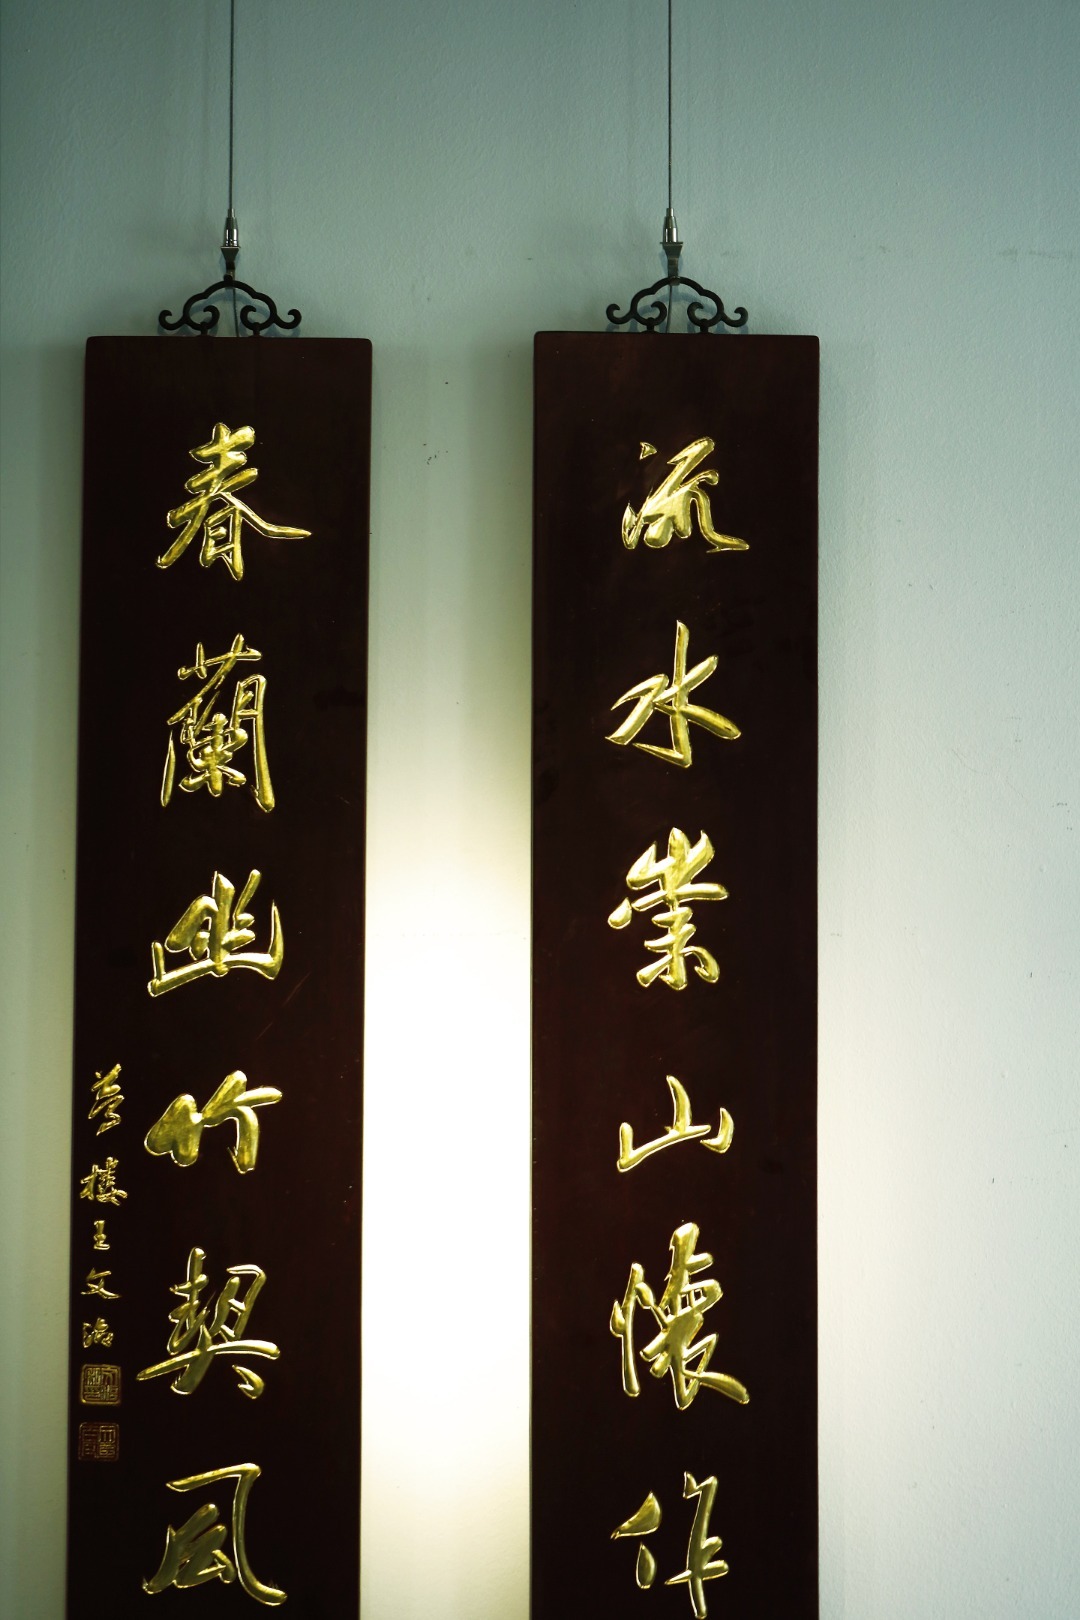 流水崇山懷作
春蘭幽竹契風
夢樓王文治